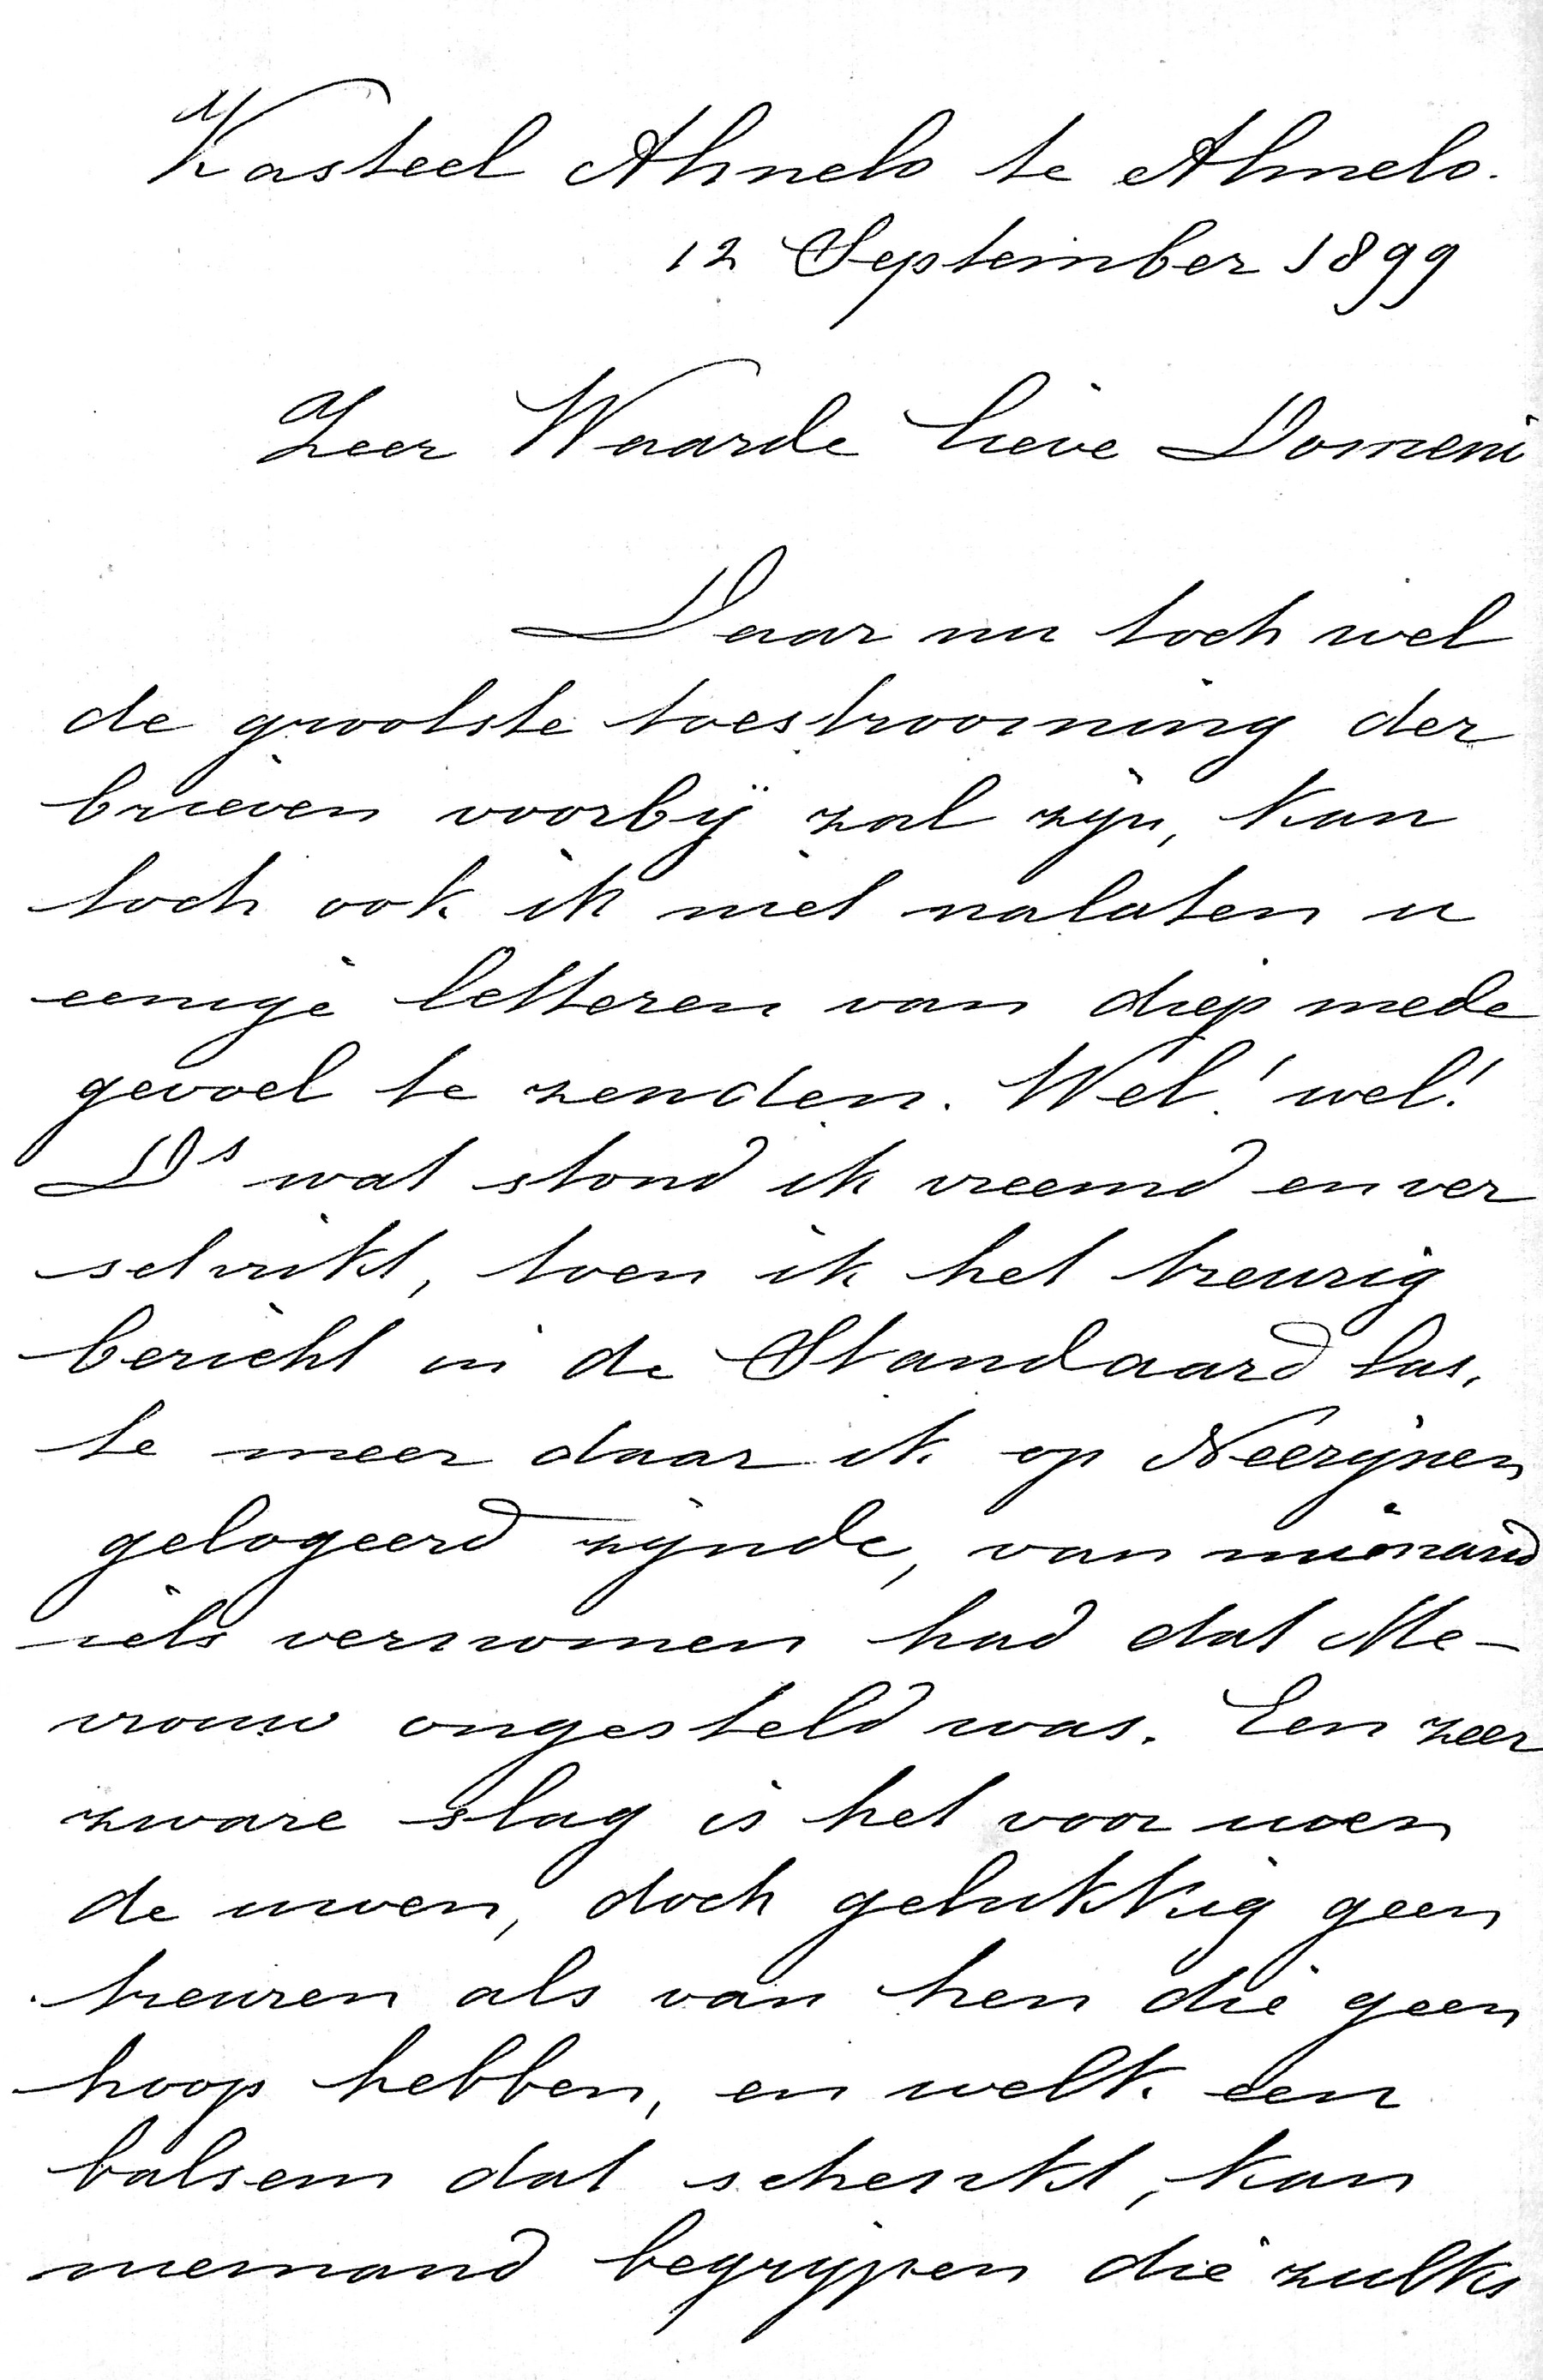 Kasteel Almelo te Almelo.
12 September 1899
Zeer Waarde lieve Domeni
Daar nu toch wel
de grootste toestrooming der
brieven voorbij zal zijn, kan
toch ook ik niet nalaten u
eenige letteren van diep mede
gevoel te zenden. Wel! wel!
Ds wat stond ik vreemd en ver
schrikt, toen ik het treurig
bericht in de Standaard las,
te meer daar ik op Neerijnen
gelogeerd zijnde, van niemand
iets vernomen had dat Me-
vrouw ongesteld was. Een zeer
zware slag is het voor u en
de uwen, doch gelukkig geen
treuren als van hen die geen
hoop hebben, en welk een
balsem dat schenkt, kan
niemand begrijpen die zulks